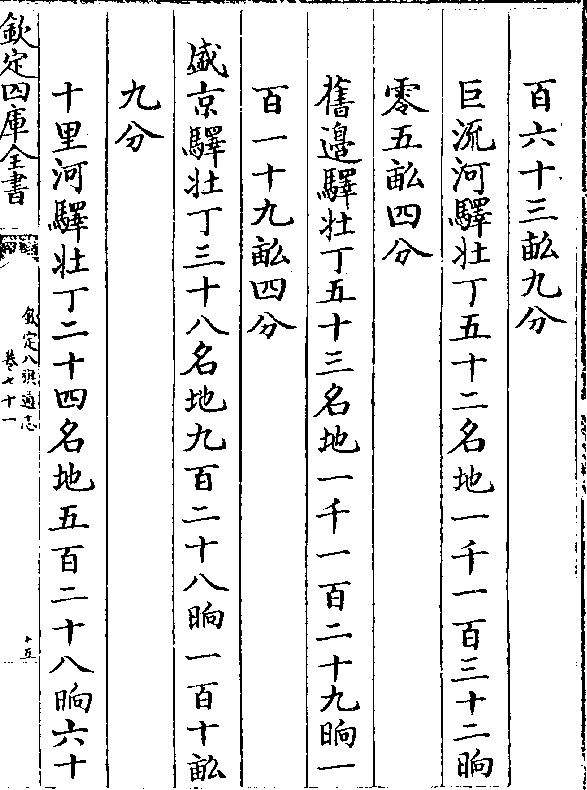 百六十三畝九分
巨流河驛壯丁五十二名地一千一百三十二晌
零五畝四分
舊邊驛壯丁五十三名地一千一百二十九晌一
百一十九畝四分
盛京驛壯丁三十八名地九百二十八晌一百十畝
九分
十里河驛壯丁二十四名地五百二十八晌六十
欽定四庫全書
欽定八旗通志
卷七十一
十五